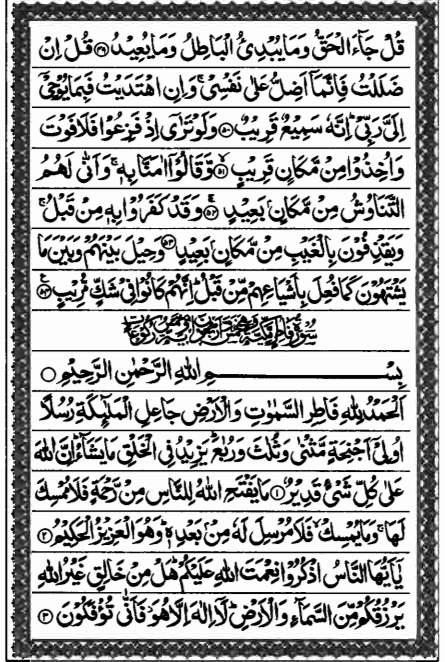 قُلْ جَآءَ الْحَقُّ وَمَا يُبْدِئُ الْبَاطِلُ وَمَا يُعِيْدُ ﴿۴۹﴾ قُلْ اِنْ
ضَلَلْتُ فَاِنَّمَآ اَضِلُّ عَلٰى نَفْسِيْ ۚ وَاِنِ اهْتَدَيْتُ فَبِمَا يُوْحِيْٓ
اِلَيَّ رَبِّيْ ؕ اِنَّهٗ سَمِيْعٌ قَرِيْبٌ ﴿۵۰﴾ وَلَوْ تَرٰٓى اِذْ فَزِعُوْا فَلَا فَوْتَ
وَاُخِذُوْا مِنْ مَّكَانٍ قَرِيْبٍ ﴿۵۱﴾ وَّقَالُوْٓا اٰمَنَّا بِهٖ ۚ وَاَنّٰى لَهُمُ
التَّنَاوُشُ مِنْ مَّكَانٍۭ بَعِيْدٍ ﴿۵۲﴾ وَّقَدْ كَفَرُوْا بِهٖ مِنْ قَبْلُ ۚ
وَيَقْذِفُوْنَ بِالْغَيْبِ مِنْ مَّكَانٍۭ بَعِيْدٍ ﴿۵۳﴾ وَحِيْلَ بَيْنَهُمْ وَبَيْنَ مَا
يَشْتَهُوْنَ كَمَا فُعِلَ بِاَشْيَاعِهِمْ مِّنْ قَبْلُ ؕ اِنَّهُمْ كَانُوْا فِيْ شَكٍّ مُّرِيْبٍ ﴿۵۴﴾
سُوْرَةُ فَاطِرٍ مَّكِّيَّةٌ
بِسْمِ اللهِ الرَّحْمٰنِ الرَّحِيْمِ ○
اَلْحَمْدُ لِلّٰهِ فَاطِرِ السَّمٰوٰتِ وَالْاَرْضِ جَاعِلِ الْمَلٰٓئِكَةِ رُسُلًا
اُولِيْٓ اَجْنِحَةٍ مَّثْنٰى وَثُلٰثَ وَرُبٰعَ ؕ يَزِيْدُ فِي الْخَلْقِ مَا يَشَآءُ ؕ اِنَّ اللهَ
عَلٰى كُلِّ شَيْءٍ قَدِيْرٌ ﴿۱﴾ مَا يَفْتَحِ اللهُ لِلنَّاسِ مِنْ رَّحْمَةٍ فَلَا مُمْسِكَ
لَهَا ۚ وَمَا يُمْسِكْ ۙ فَلَا مُرْسِلَ لَهٗ مِنْۢ بَعْدِهٖ ؕ وَهُوَ الْعَزِيْزُ الْحَكِيْمُ ﴿۲﴾
يٰٓاَيُّهَا النَّاسُ اذْكُرُوْا نِعْمَتَ اللهِ عَلَيْكُمْ ؕ هَلْ مِنْ خَالِقٍ غَيْرُ اللهِ
يَرْزُقُكُمْ مِّنَ السَّمَآءِ وَالْاَرْضِ ؕ لَآ اِلٰهَ اِلَّا هُوَ ۖ فَاَنّٰى تُؤْفَكُوْنَ ﴿۳﴾